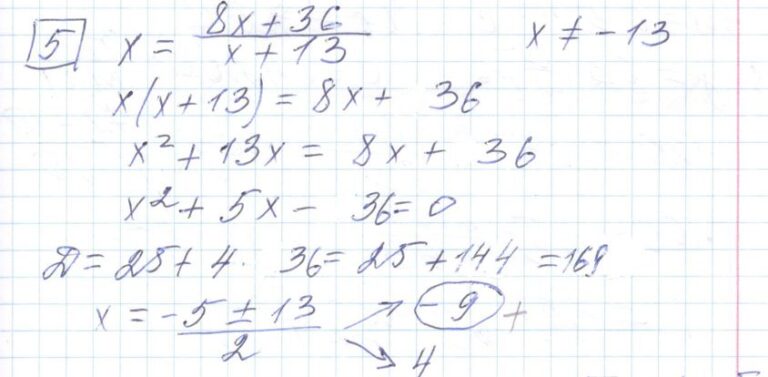 5 x = (8x + 36)/(x + 13) x ≠ -13
x(x + 13) = 8x + 36
x² + 13x = 8x + 36
x² + 5x - 36 = 0
D = 25 + 4 · 36 = 25 + 144 = 169
x = (-5 ± 13)/2 ↗ -9 +
↘ 4